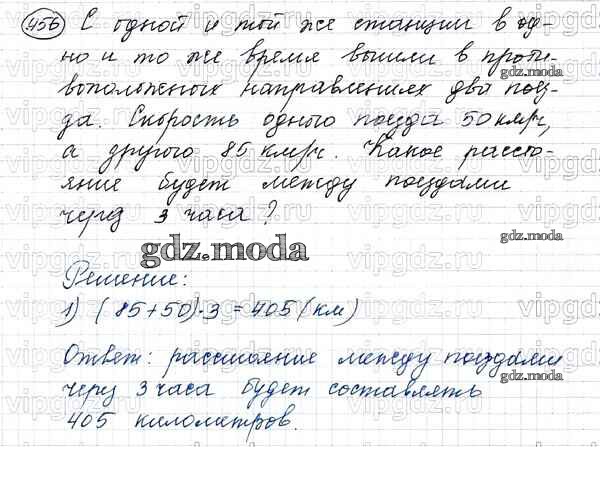 456 С одной и той же станции в од-
но и то же время вышли в проти-
воположных направлениях два поез-
да. Скорость одного поезда 50 км/ч,
а другого 85 км/ч. Какое рассто-
яние будет между поездами
через 3 часа?
gdz.moda
Решение:
1) (85+50)·3=405 (км)
Ответ: расстояние между поездами
через 3 часа будет составлять
405 километров.